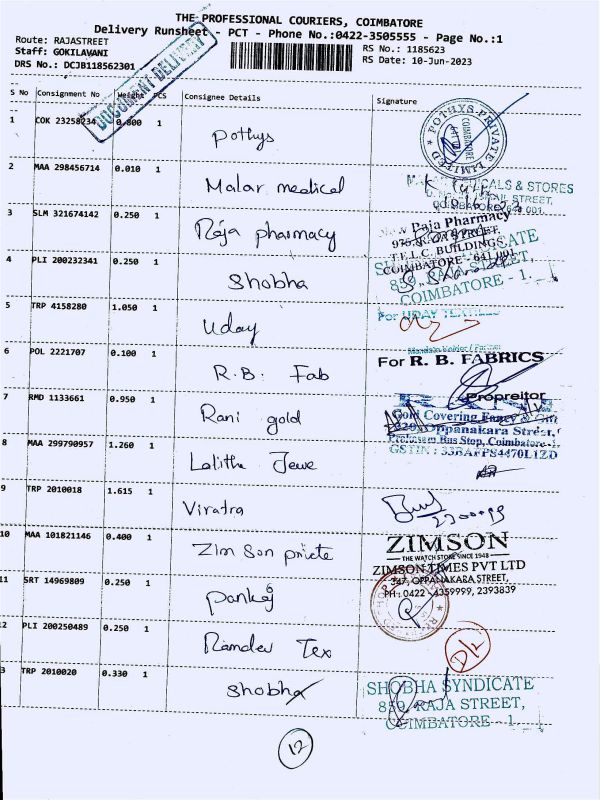 THE PROFESSIONAL COURIERS, COIMBATORE
Delivery Runsheet - PCT - Phone No.:0422-3505555 - Page No.:1
Route: RAJASTREET
RS No.: 1185623
Staff: GOKILAVANI
RS Date: 10-Jun-2023
DRS No.: DCJB118562301
DOCUMENT DELIVERY
S No Consignment No Weight PCS Consignee Details Signature
1 COK 23258234 0.800 1 Pothys
POTHYS PRIVATE LIMITED
COIMBATORE
2 MAA 298456714 0.010 1 Malar medical
& STORES
STREET,
COIMBATORE 641 001
3 SLM 321674142 0.250 1 Raja pharmacy
New Raja Pharmacy
975, RAJA STREET,
T.E.L.C. BUILDINGS,
COIMBATORE - 641 001
4 PLI 200232341 0.250 1 Shobha
SHOBHA SYNDICATE
859, RAJA STREET,
COIMBATORE - 1.
5 TRP 4158280 1.050 1 Uday
For UDAY TEXTILES
6 POL 2221707 0.100 1 R.B. Fab
For R. B. FABRICS
Propreitor
7 RMD 1133661 0.950 1 Rani gold
Gold Covering Fancy &
Oppanakara Street,
Prakasam Bus Stop, Coimbatore-1.
GSTIN : 33BAFPS4470L1ZD
8 MAA 299790957 1.260 1 Lalitha Jewe
9 TRP 2010018 1.615 1 Viratra
10 MAA 101821146 0.400 1 Zim Son priete
ZIMSON
THE WATCH STORE SINCE 1948
ZIMSON TIMES PVT LTD
347, OPPANAKARA STREET,
PH : 0422 - 4359999, 2393839
11 SRT 14969809 0.250 1 Pankaj
12 PLI 200250489 0.250 1 Ramdev Tex
D/2
13 TRP 2010020 0.330 1 Shobha
SHOBHA SYNDICATE
859, RAJA STREET,
COIMBATORE - 1.
12